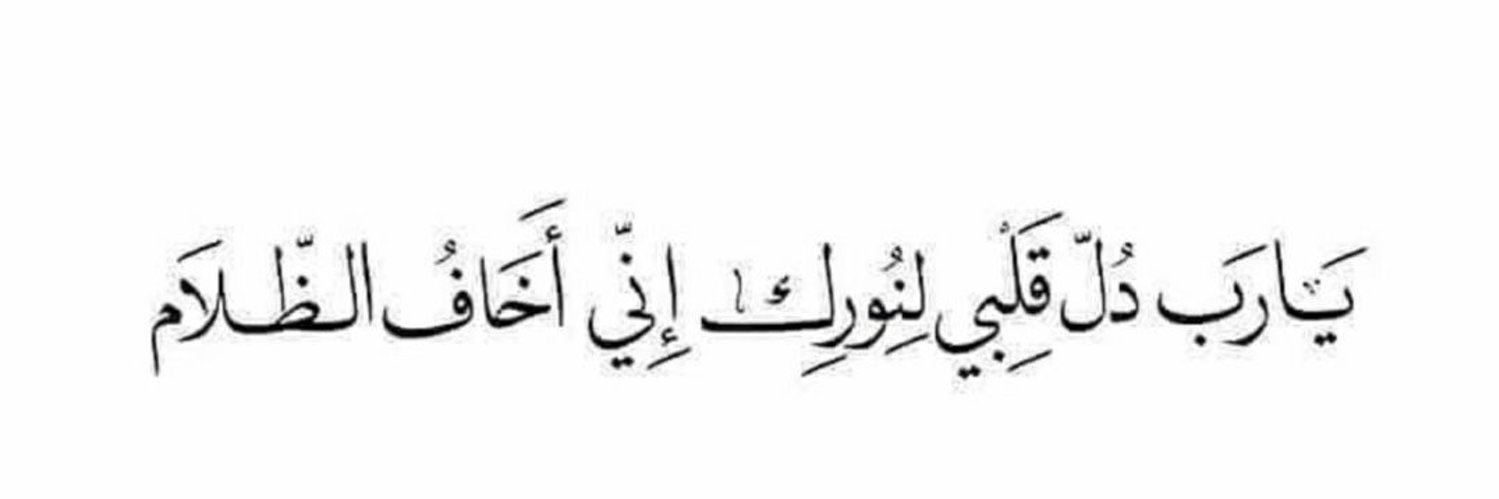 يَارَب دُلّ قَلِبْي لِنُورِك إِنِّي أَخَافُ الظّلَام